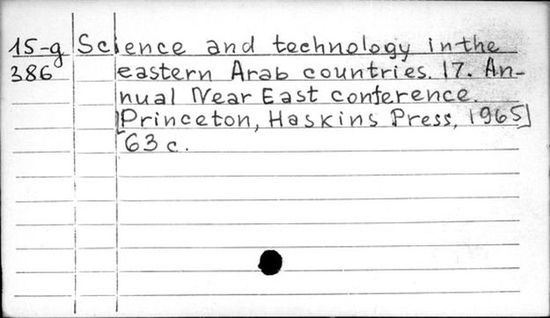 15-g Science and technology in the
386 eastern Arab countries. 17. An-
nual Near East conference.
[Princeton, Haskins Press, 1965]
63 c.